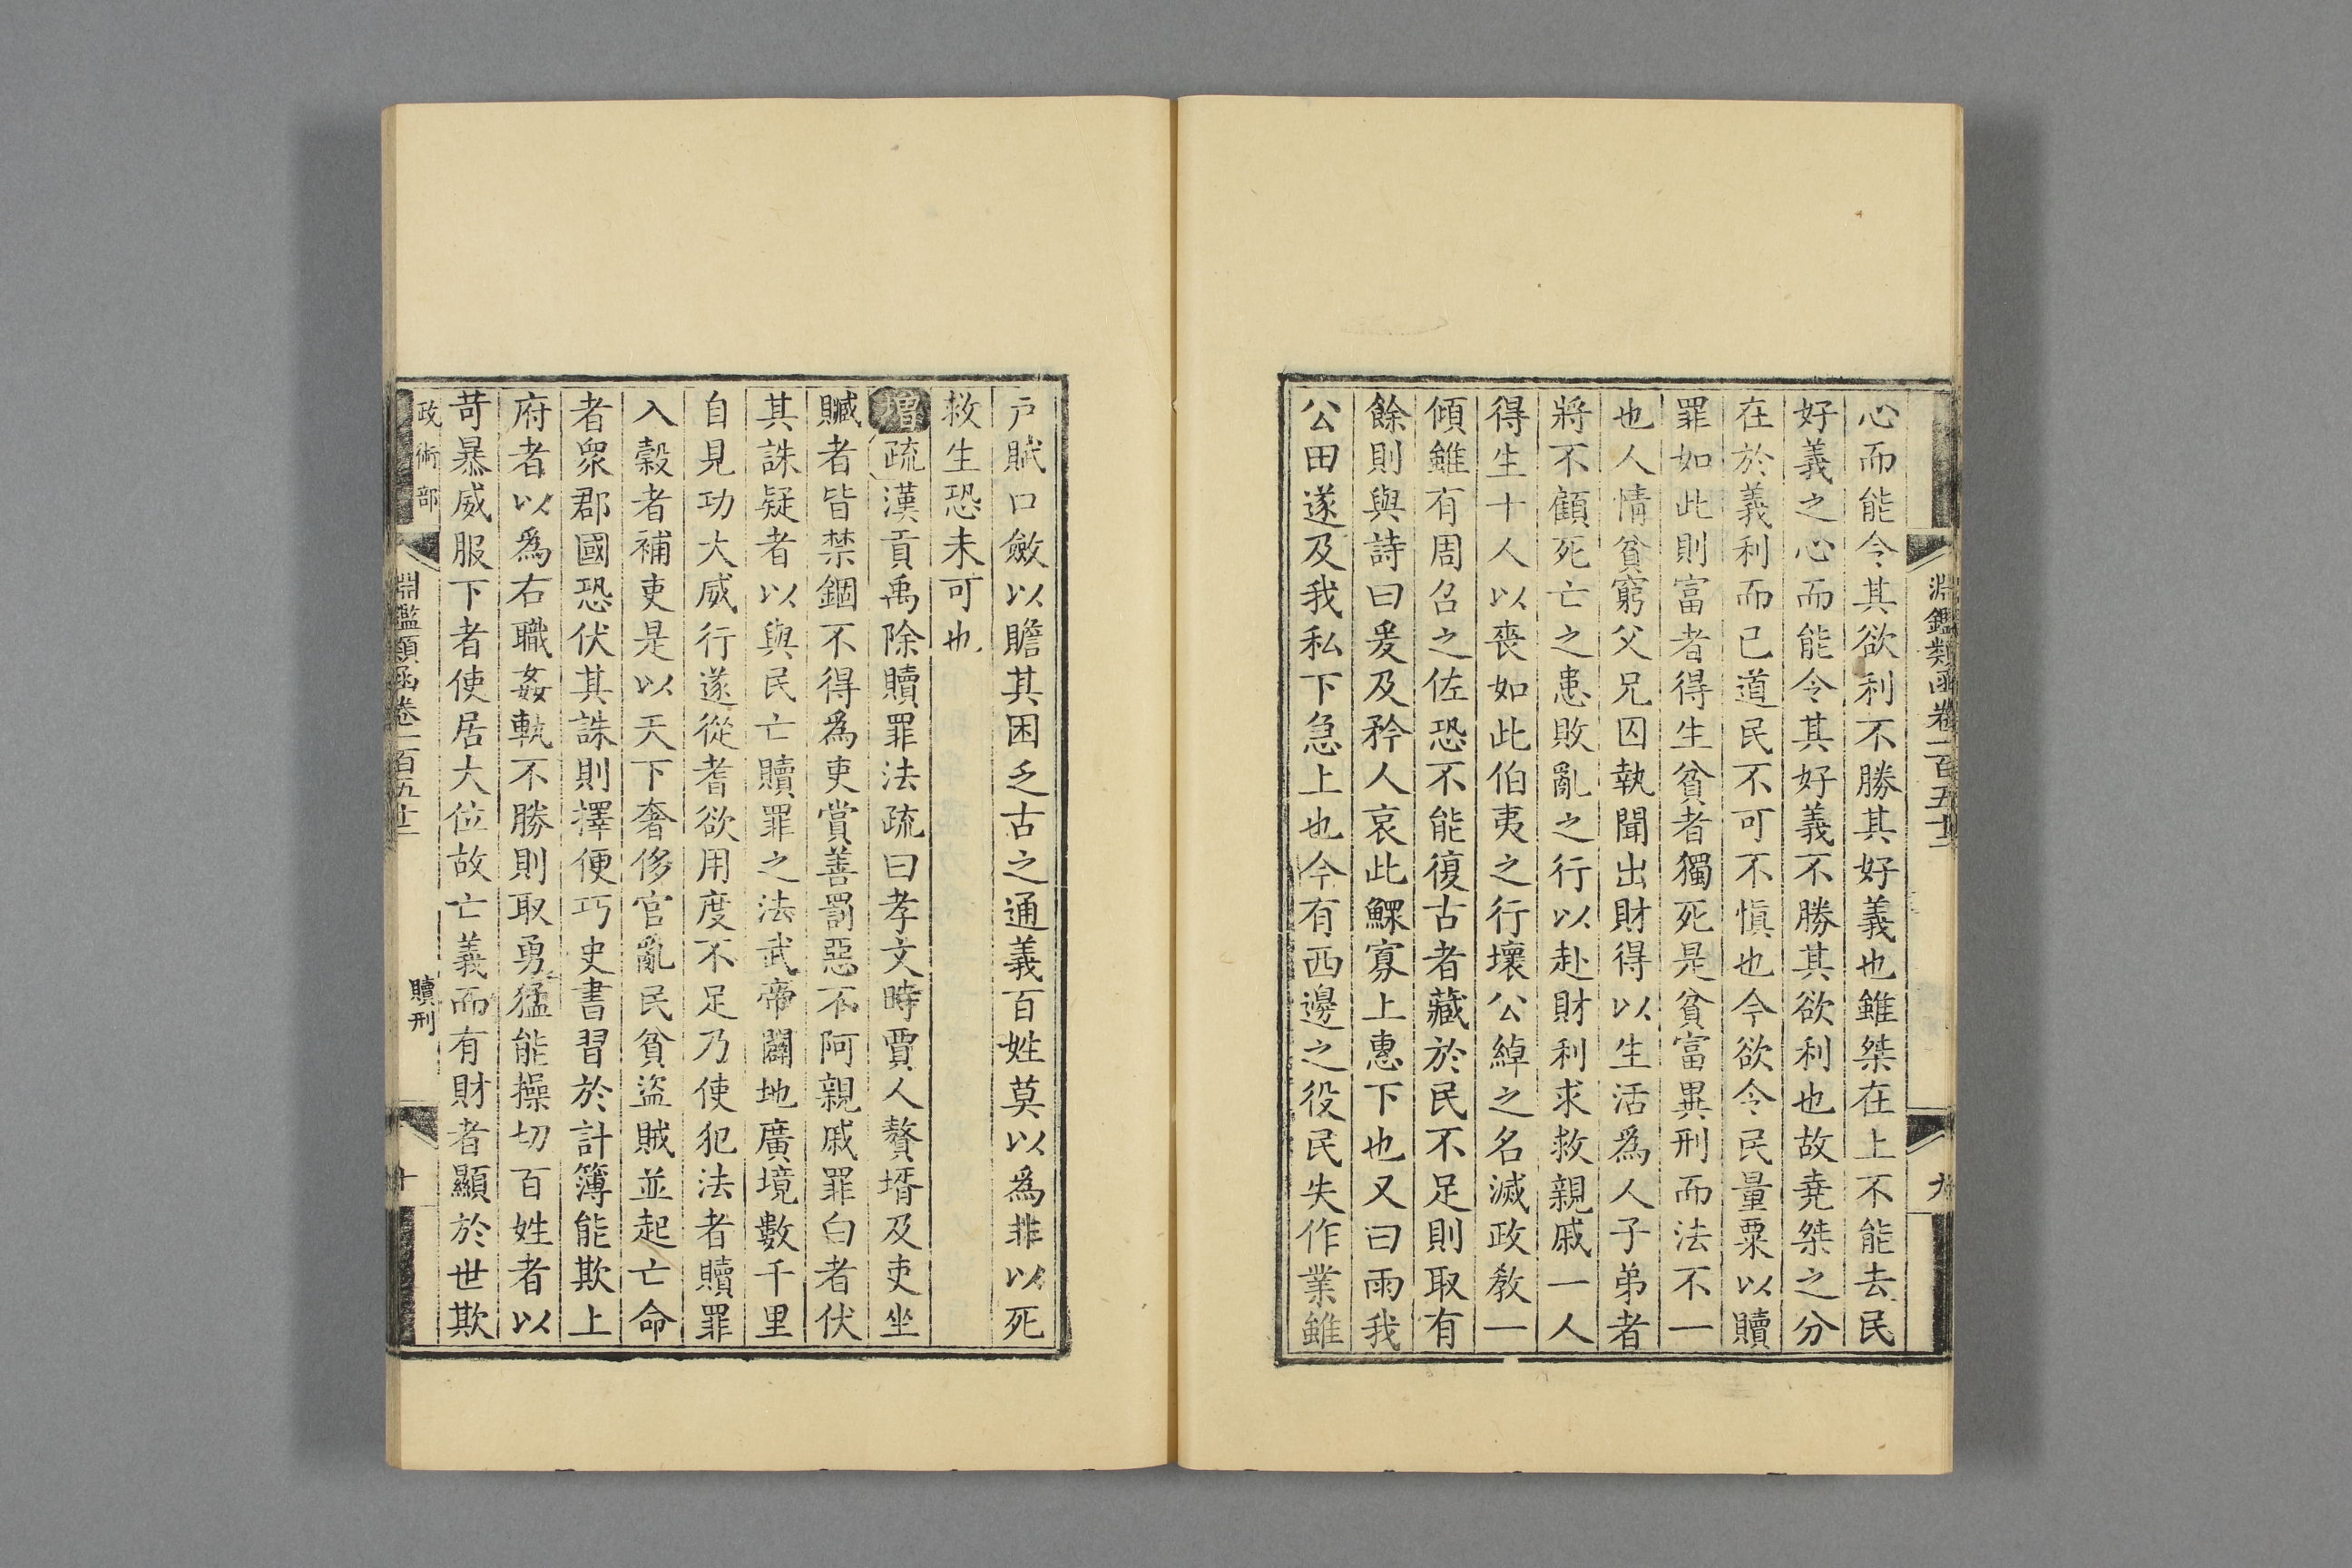 淵鑑類函卷一百五十二
九
心而能令其欲利不勝其好義也雖桀在上不能去民
好義之心而能令其好義不勝其欲利也故堯桀之分
在於義利而已道民不可不慎也今欲令民量粟以贖
罪如此則富者得生貧者獨死是貧富異刑而法不一
也人情貧窮父兄囚執聞出財得以生活爲人子弟者
將不顧死亡之患敗亂之行以赴財利求救親戚一人
得生十人以喪如此伯夷之行壞公綽之名滅政教一
傾雖有周召之佐恐不能復古者藏於民不足則取有
餘則與詩曰爰及矜人哀此鰥寡上惠下也又曰雨我
公田遂及我私下急上也今有西邊之役民失作業雖
戶賦口斂以贍其困乏古之通義百姓莫以爲非以死
救生恐未可也
增疏漢貢禹除贖罪法疏曰孝文時賈人贅壻及吏坐
贓者皆禁錮不得爲吏賞善罰惡不阿親戚罪白者伏
其誅疑者以與民亡贖罪之法武帝闢地廣境數千里
自見功大威行遂從耆欲用度不足乃使犯法者贖罪
入穀者補吏是以天下奢侈官亂民貧盜賊並起亡命
者衆郡國恐伏其誅則擇便巧史書習於計簿能欺上
府者以爲右職姦軌不勝則取勇猛能操切百姓者以
苛暴威服下者使居大位故亡義而有財者顯於世欺
政術部
贖刑
淵鑑類函卷一百五十二
十